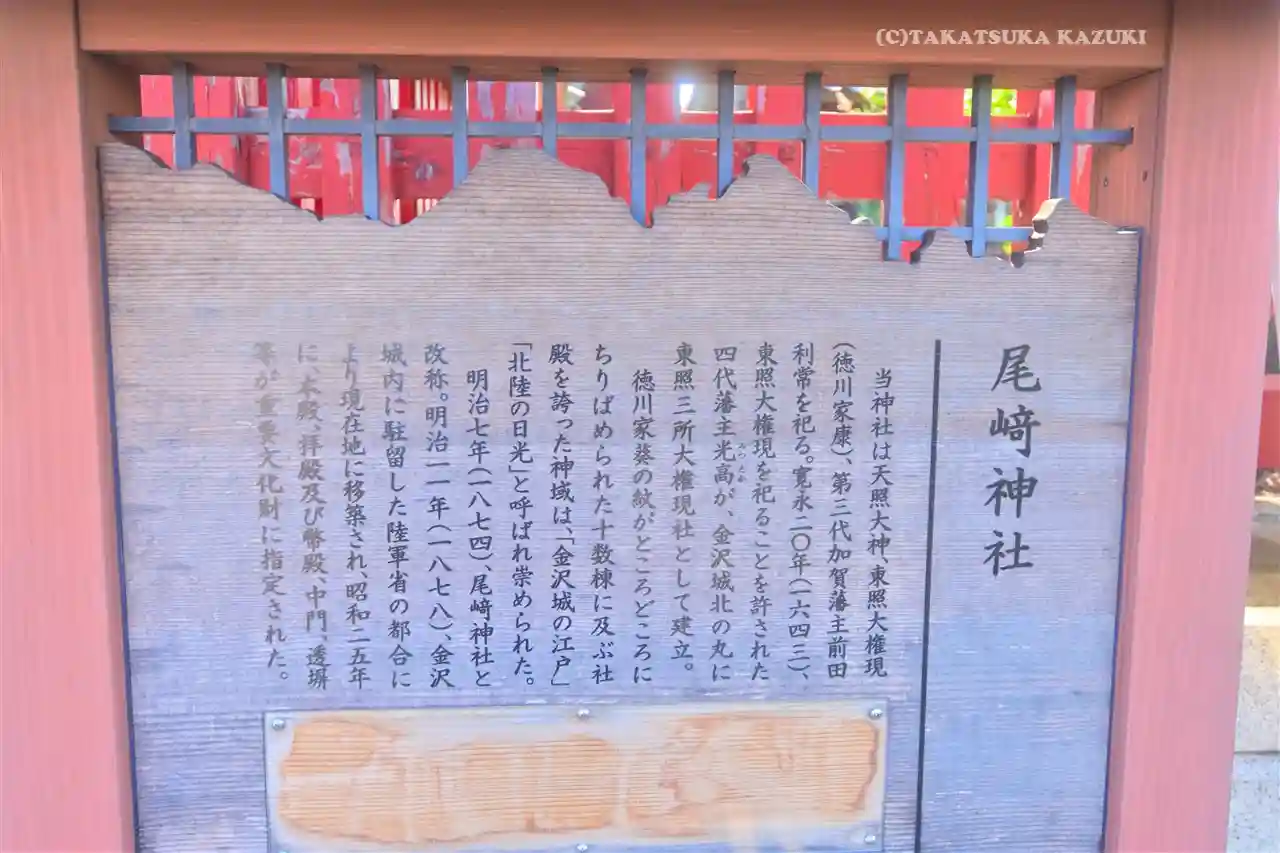 (C)TAKATSUKA KAZUKI
尾﨑神社
当神社は天照大神、東照大権現
(徳川家康)、第三代加賀藩主前田
利常を祀る。寛永二〇年(一六四三)、
東照大権現を祀ることを許された
四代藩主光高が、金沢城北の丸に
みつたか
東照三所大権現社として建立。
徳川家葵の紋がところどころに
ちりばめられた十数棟に及ぶ社
殿を誇った神域は、「金沢城の江戸」
「北陸の日光」と呼ばれ崇められた。
明治七年(一八七四)、尾﨑神社と
改称。明治一一年(一八七八)、金沢
城内に駐留した陸軍省の都合に
より現在地に移築され、昭和二五年
に、本殿、拝殿及び幣殿、中門、透塀
等が重要文化財に指定された。